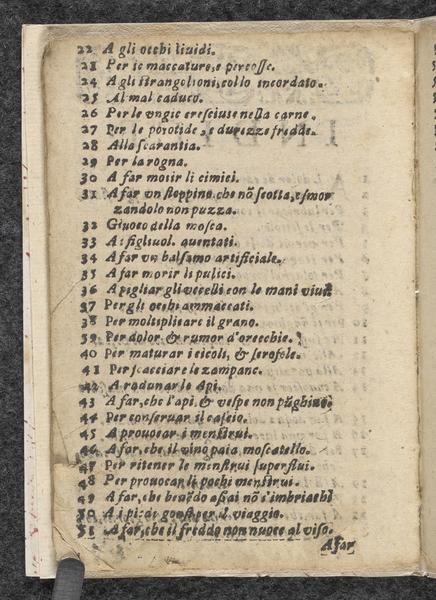 22 A gli occhi liuidi.
23 Per le maccature, e percosse.
24 A gli strangolioni, collo incordato.
25 Al mal caduco.
26 Per le vngie cresciute nella carne.
27 Per le porotide, e durezze fredde.
28 Alla scarantia.
29 Per la rogna.
30 A far morir li cimici.
31 A far vn stoppino che nõ scotta, e smor
zandolo non puzza.
32 Giuoco della mosca.
33 A i figliuol. quentati.
34 A far vn balsamo artificiale.
35 A far morir li pulici.
36 A pigliar gli vccelli con le mani viui.
37 Per gli occhi ammaccati.
38 Per moltiplicare il grano.
39 Per dolor & rumor d'orecchie.
40 Per maturar i cicoli, & serofole.
41 Per scacciare le zampane.
42 A radunar le Api.
43 A far, che l'api, & vespe non pũghino.
44 Per conseruar il cascio.
45 A prouocar i menstrui.
46 A far, che il vino paia moscatello.
47 Per ritener le menstrui superflui.
48 Per prouocar li pochi menstrui.
49 A far, che beuẽdo assai nõ s'imbriachi
50 A i piedi gonfi per il viaggio.
51 A far, che il freddo non nuoce al viso.
A far